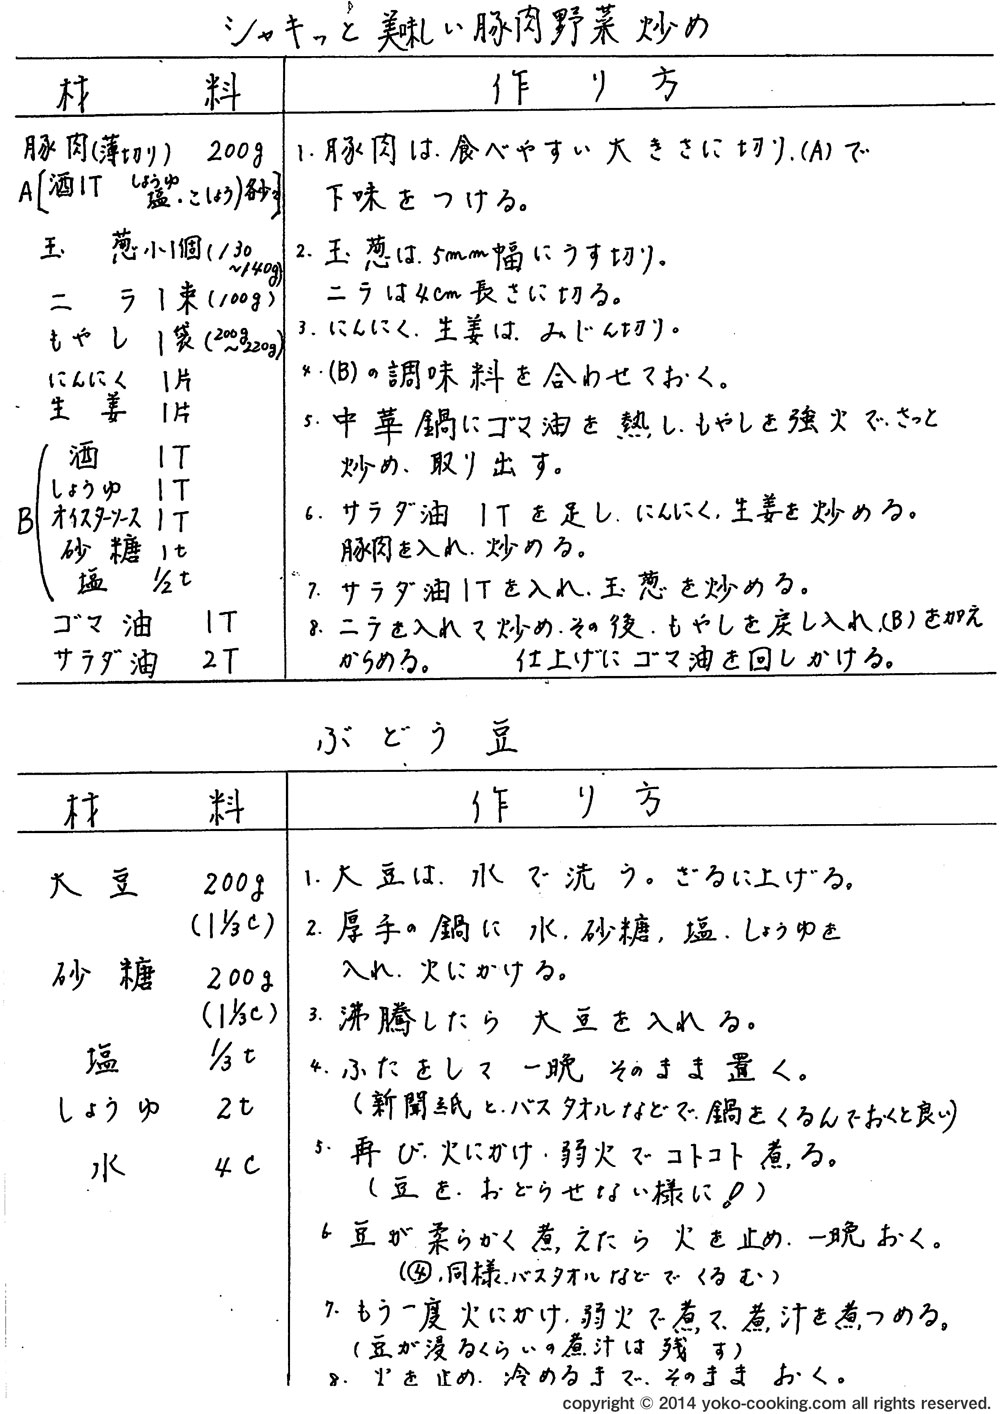 シャキッと美味しい豚肉野菜炒め
材料
作り方
豚肉(薄切り) 200g
A[酒1T しょうゆ 塩・こしょう)各少々]
玉葱小1個(130~140g)
ニラ1束(100g)
もやし1袋(200g~220g)
にんにく 1片
生姜 1片
B(酒 1T
しょうゆ 1T
オイスターソース 1T
砂糖 1t
塩 1/2t
ゴマ油 1T
サラダ油 2T
1. 豚肉は、食べやすい大きさに切り、(A)で
下味をつける。
2. 玉葱は、5mm幅にうす切り。
ニラは4cm長さに切る。
3. にんにく、生姜は、みじん切り。
4. (B)の調味料を合わせておく。
5. 中華鍋にゴマ油を熱し、もやしを強火で、さっと
炒め、取り出す。
6. サラダ油 1Tを足し、にんにく、生姜を炒める。
豚肉を入れ、炒める。
7. サラダ油1Tを入れ、玉葱を炒める。
8. ニラを入れて炒め、その後、もやしを戻し入れ、(B)を加え
からめる。 仕上げにゴマ油を回しかける。
ぶどう豆
材料
作り方
大豆 200g
(1 1/3C)
砂糖 200g
(1 1/3C)
塩 1/3t
しょうゆ 2t
水 4C
1. 大豆は、水で洗う。ざるに上げる。
2. 厚手の鍋に水、砂糖、塩、しょうゆを
入れ、火にかける。
3. 沸騰したら大豆を入れる。
4. ふたをして一晩そのまま置く。
(新聞紙と、バスタオルなどで、鍋をくるんでおくと良い)
5. 再び、火にかけ、弱火でコトコト煮る。
(豆を、おどらせない様に!)
6. 豆が柔らかく煮えたら火を止め、一晩おく。
(④、同様、バスタオルなどでくるむ)
7. もう一度火にかけ、弱火で煮て、煮汁を煮つめる。
(豆が浸るくらいの煮汁は残す)
8. 火を止め、冷めるまで、そのままおく。
copyright © 2014 yoko-cooking.com all rights reserved.